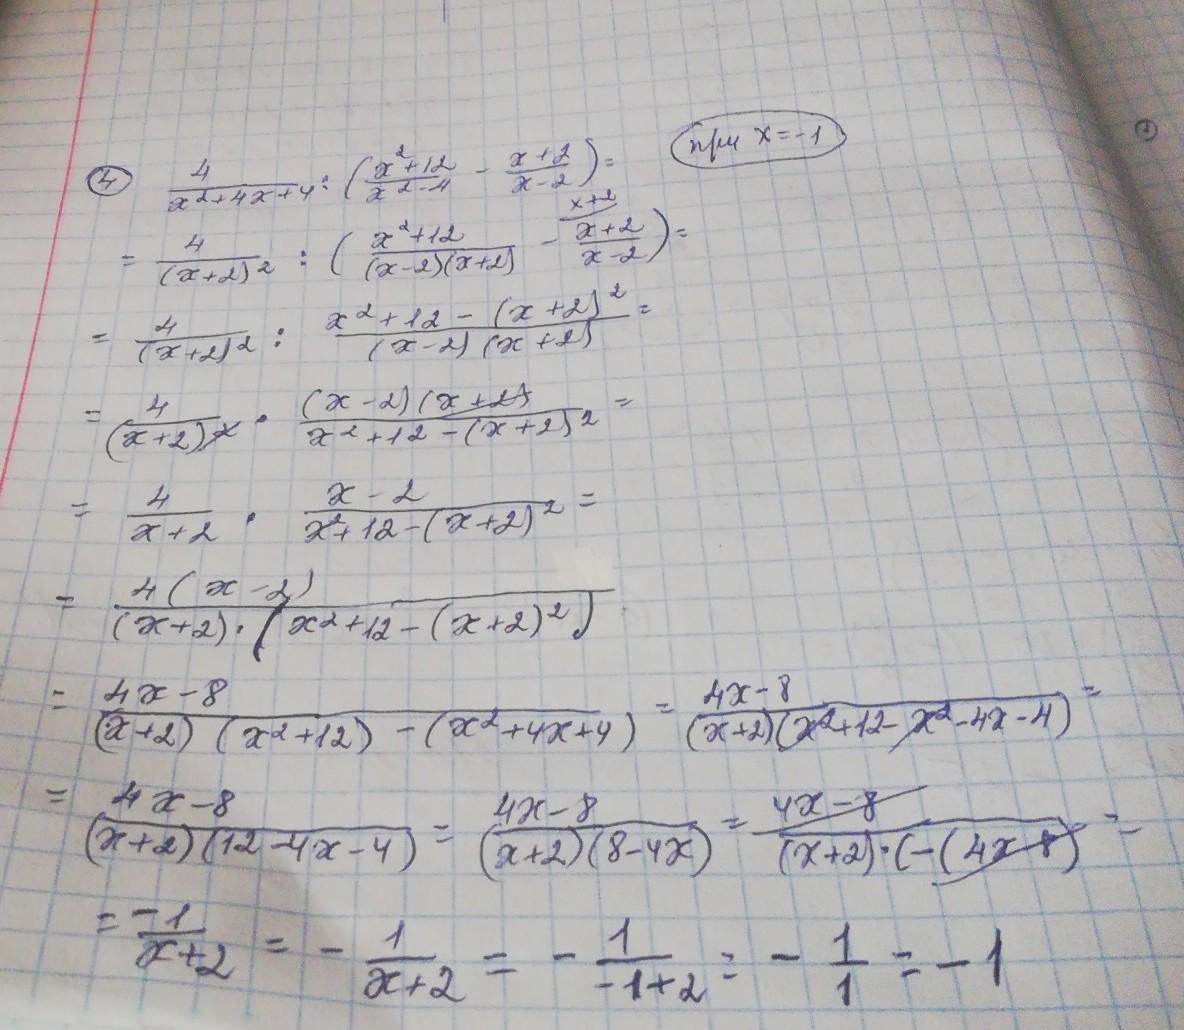 ④ 4/(x²+4x+4) : ((x²+12)/(x²-4) - (x+2)/(x-2)) = при x=-1
= 4/(x+2)² : ((x²+12)/((x-2)(x+2)) - (x+2)/(x-2)) = x+2
= 4/(x+2)² : (x²+12-(x+2)²)/((x-2)(x+2)) =
= 4/(x+2)² · ((x-2)(x+2))/(x²+12-(x+2)²) =
= 4/(x+2) · (x-2)/(x²+12-(x+2)²) =
= 4(x-2)/((x+2)·(x²+12-(x+2)²))
= (4x-8)/((x+2)(x²+12)-(x²+4x+4)) = (4x-8)/((x+2)(x²+12-x²-4x-4)) =
= (4x-8)/((x+2)(12-4x-4)) = (4x-8)/((x+2)(8-4x)) = (4x-8)/((x+2)·(-(4x-8)) =
= -1/(x+2) = - 1/(x+2) = - 1/(-1+2) = - 1/1 = -1